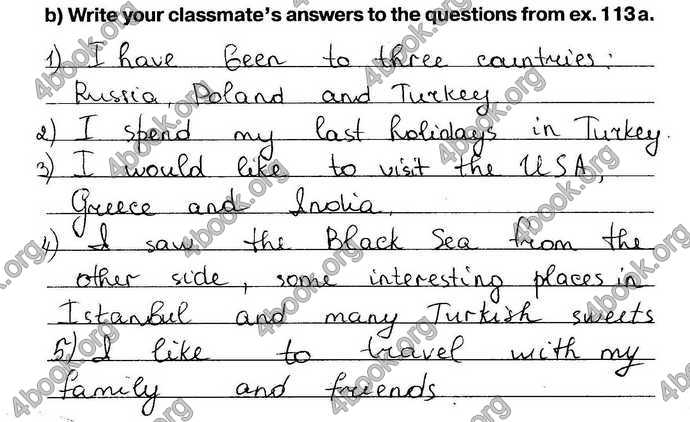 b) Write your classmate's answers to the questions from ex. 113a.
1) I have been to three countries:
Russia, Poland and Turkey
2) I spend my last holidays in Turkey.
3) I would like to visit the USA,
Greece and India.
4) I saw the Black Sea from the
other side, some interesting places in
Istanbul and many Turkish sweets
5) I like to travel with my
family and friends.
4book.org